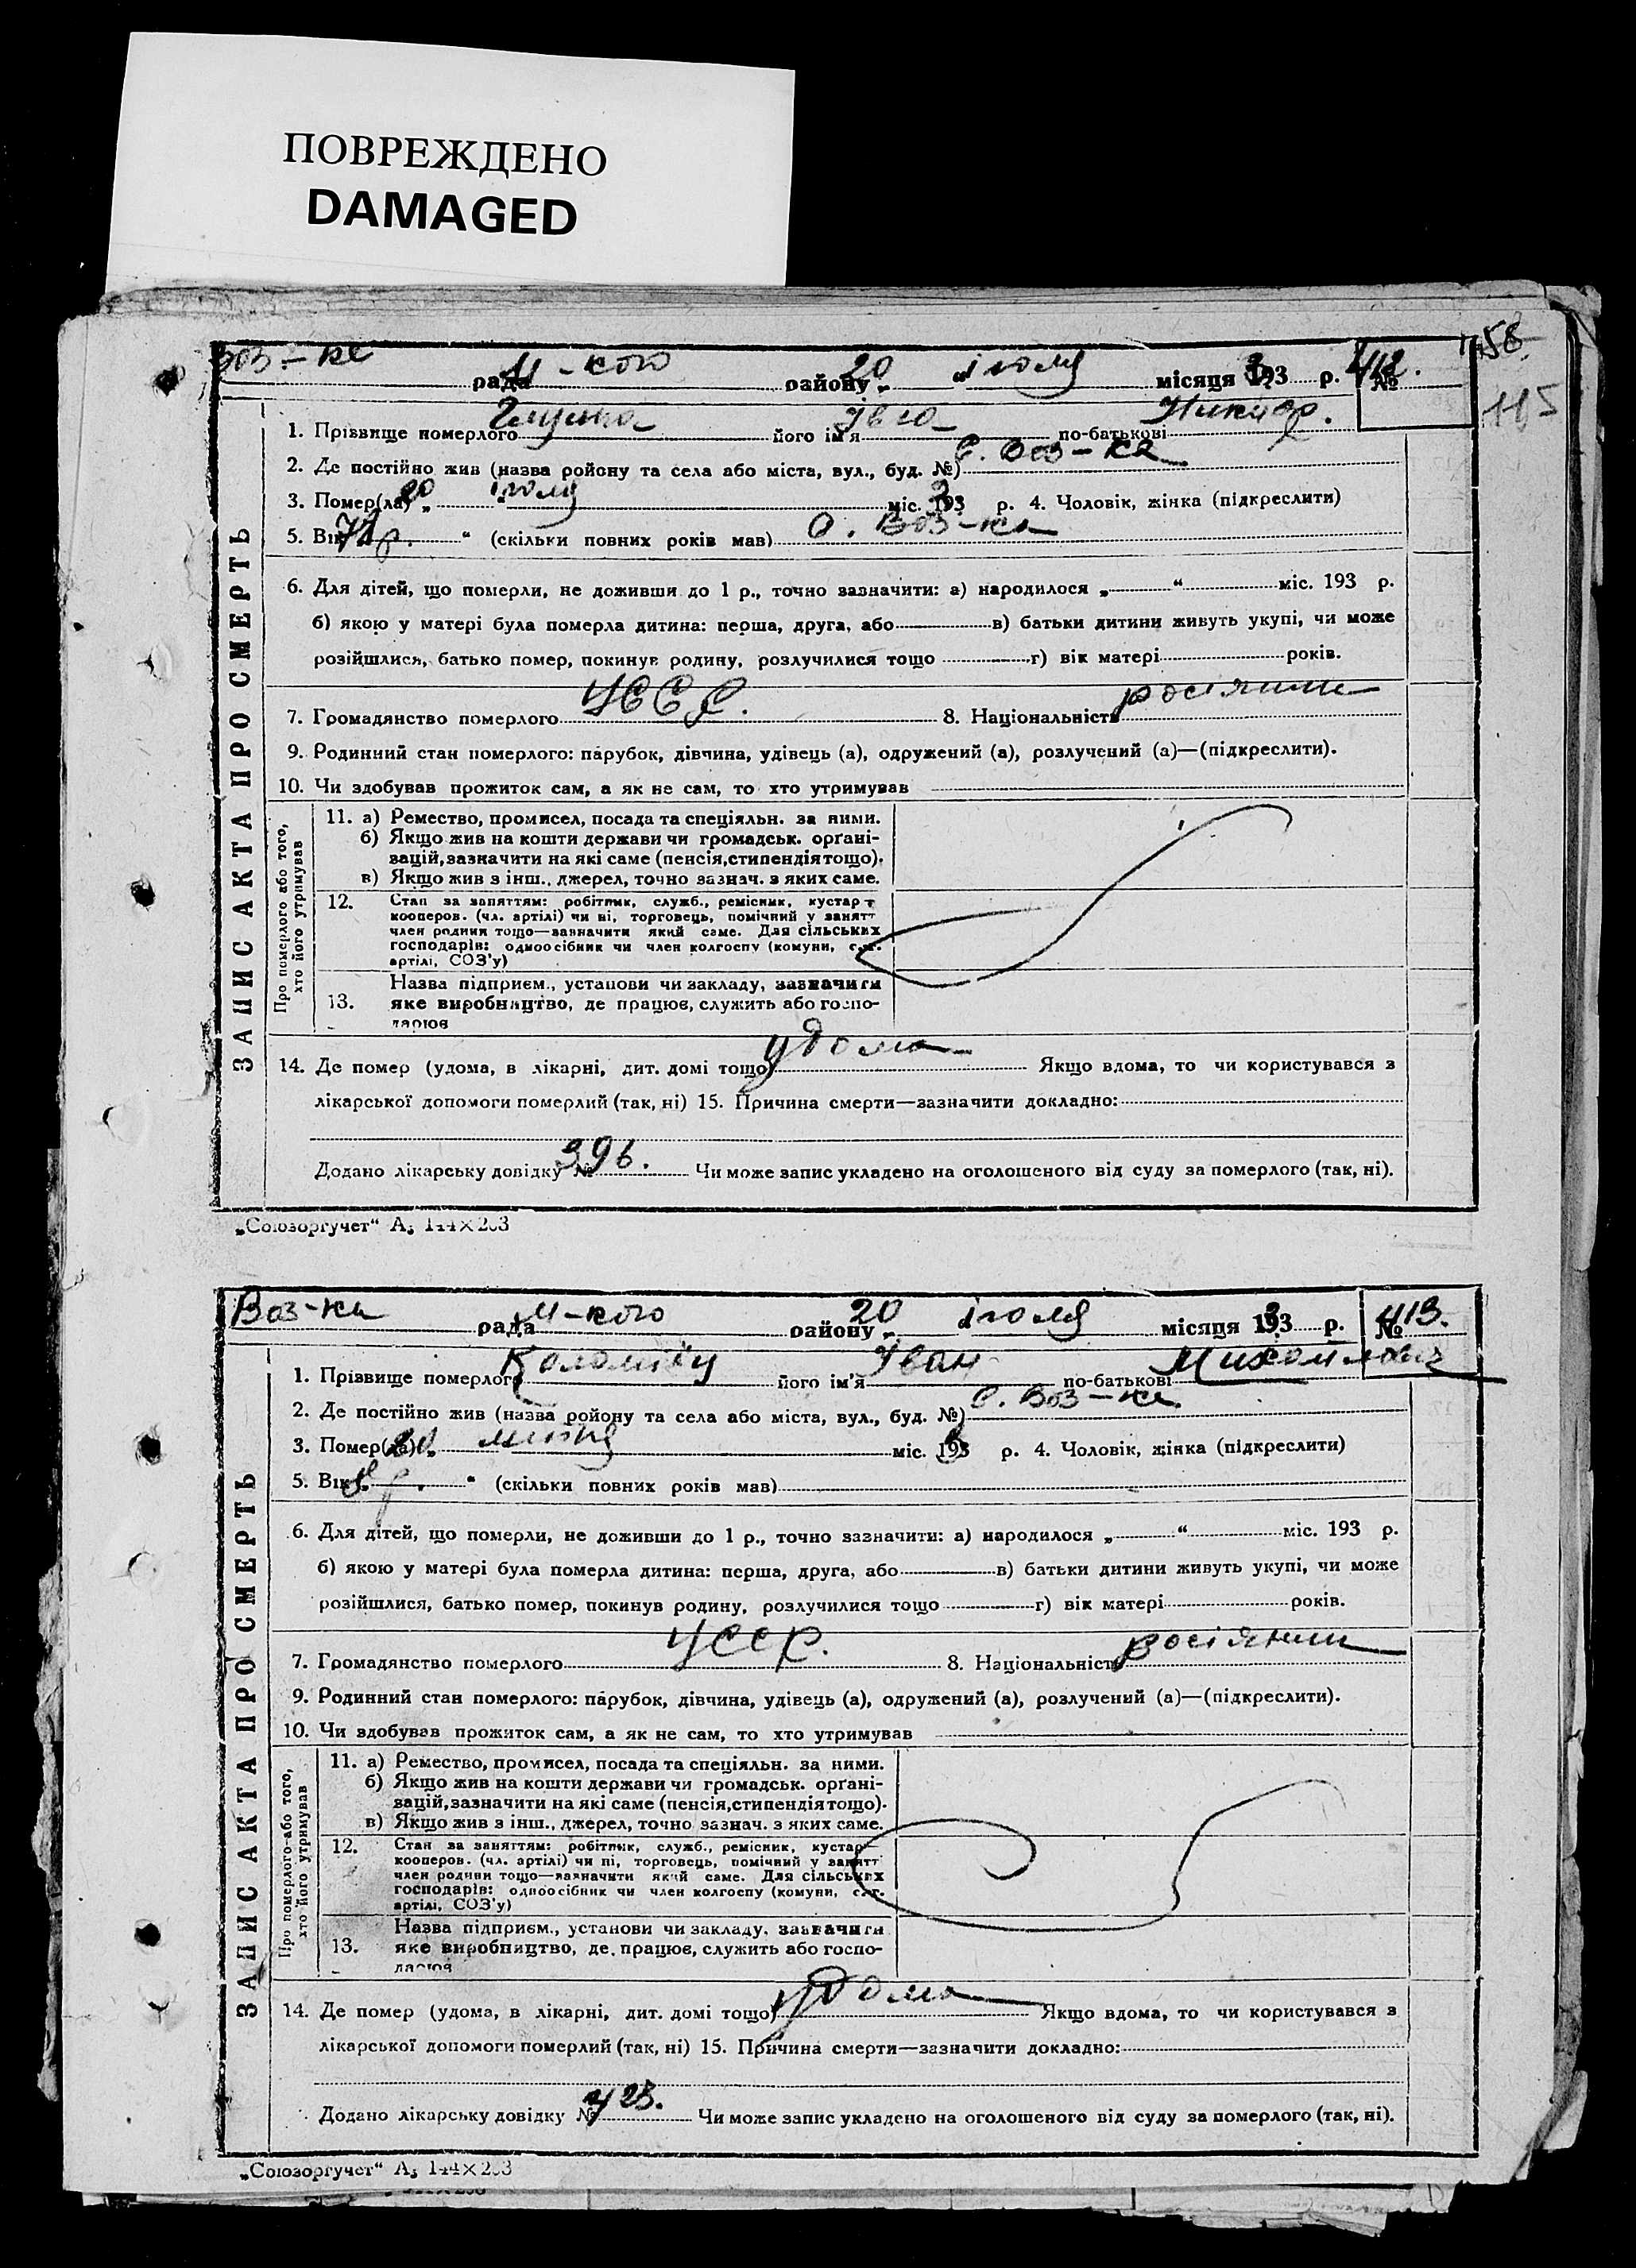 ПОВРЕЖДЕНО
DAMAGED
58.
115
Воз-ка рада М-кого району „ 20 “ іюля місяця 1933 р. № 412.
ЗАПИС АКТА ПРО СМЕРТЬ
1. Прізвище померлого його ім'я по-батькові
2. Де постійно жив (назва району та села або міста, вул., буд. №) С. Воз-ка
3. Помер(ла) „ 20 “ іюля міс. 1933 р. 4. Чоловік, жінка (підкреслити)
5. Вік р. “ (скільки повних років мав) С. Воз-ка
6. Для дітей, що померли, не доживши до 1 р., точно зазначити: а) народилося „ “ міс. 193 р.
б) якою у матері була померла дитина: перша, друга, або в) батьки дитини живуть укупі, чи може
розійшлися, батько помер, покинув родину, розлучилися тощо г) вік матері років.
7. Громадянство померлого УССР. 8. Національність росіянин
9. Родинний стан померлого: парубок, дівчина, удівець (а), одружений (а), розлучений (а)—(підкреслити).
10. Чи здобував прожиток сам, а як не сам, то хто утримував
Про померлого або того, хто його утримував
11. а) Ремество, промисел, посада та спеціяльн. за ними.
б) Якщо жив на кошти держави чи громадськ. орґані-
зацій, зазначити на які саме (пенсія, стипендія тощо).
в) Якщо жив з інш., джерел, точно зазнач. з яких саме.
12. Стан за заняттям: робітник, служб., ремісник, кустар
кооперов. (чл. артілі) чи ні, торговець, помічний у занятт
член родини тощо—зазначити який саме. Для сільських
господарів: одноосібник чи член колгоспу (комуни, с.-г.
артілі, СОЗ'у)
13. Назва підприєм., установи чи закладу, зазначити
яке виробництво, де працює, служить або госпо-
дарює
14. Де помер (удома, в лікарні, дит. домі тощо) удома Якщо вдома, то чи користувався з
лікарської допомоги померлий (так, ні) 15. Причина смерти—зазначити докладно:
Додано лікарську довідку № 396. Чи може запис укладено на оголошеного від суду за померлого (так, ні).
„Союзоргучет“ А₅ 144×203
Воз-ка рада М-кого району „ 20 іюля місяця 1933 р. № 413.
ЗАПИС АКТА ПРО СМЕРТЬ
1. Прізвище померлого його ім'я Іван по-батькові Михайлович
2. Де постійно жив (назва району та села або міста, вул., буд. №) С. Воз-ка
3. Помер(ла) „ міс. 193 р. 4. Чоловік, жінка (підкреслити)
5. Вік р. “ (скільки повних років мав)
6. Для дітей, що померли, не доживши до 1 р., точно зазначити: а) народилося „ “ міс. 193 р.
б) якою у матері була померла дитина: перша, друга, або в) батьки дитини живуть укупі, чи може
розійшлися, батько помер, покинув родину, розлучилися тощо г) вік матері років.
7. Громадянство померлого УССР. 8. Національність росіянин
9. Родинний стан померлого: парубок, дівчина, удівець (а), одружений (а), розлучений (а)—(підкреслити).
10. Чи здобував прожиток сам, а як не сам, то хто утримував
Про померлого або того, хто його утримував
11. а) Ремество, промисел, посада та спеціяльн. за ними.
б) Якщо жив на кошти держави чи громадськ. орґані-
зацій, зазначити на які саме (пенсія, стипендія тощо).
в) Якщо жив з інш., джерел, точно зазнач. з яких саме.
12. Стан за заняттям: робітник, служб., ремісник, кустар
кооперов. (чл. артілі) чи ні, торговець, помічний у занятт
член родини тощо—зазначити який саме. Для сільських
господарів: одноосібник чи член колгоспу (комуни, с.-г.
артілі, СОЗ'у)
13. Назва підприєм., установи чи закладу, зазначити
яке виробництво, де працює, служить або госпо-
дарює
14. Де помер (удома, в лікарні, дит. домі тощо) удома Якщо вдома, то чи користувався з
лікарської допомоги померлий (так, ні) 15. Причина смерти—зазначити докладно:
Додано лікарську довідку № 423. Чи може запис укладено на оголошеного від суду за померлого (так, ні).
„Союзоргучет“ А₅ 144×203